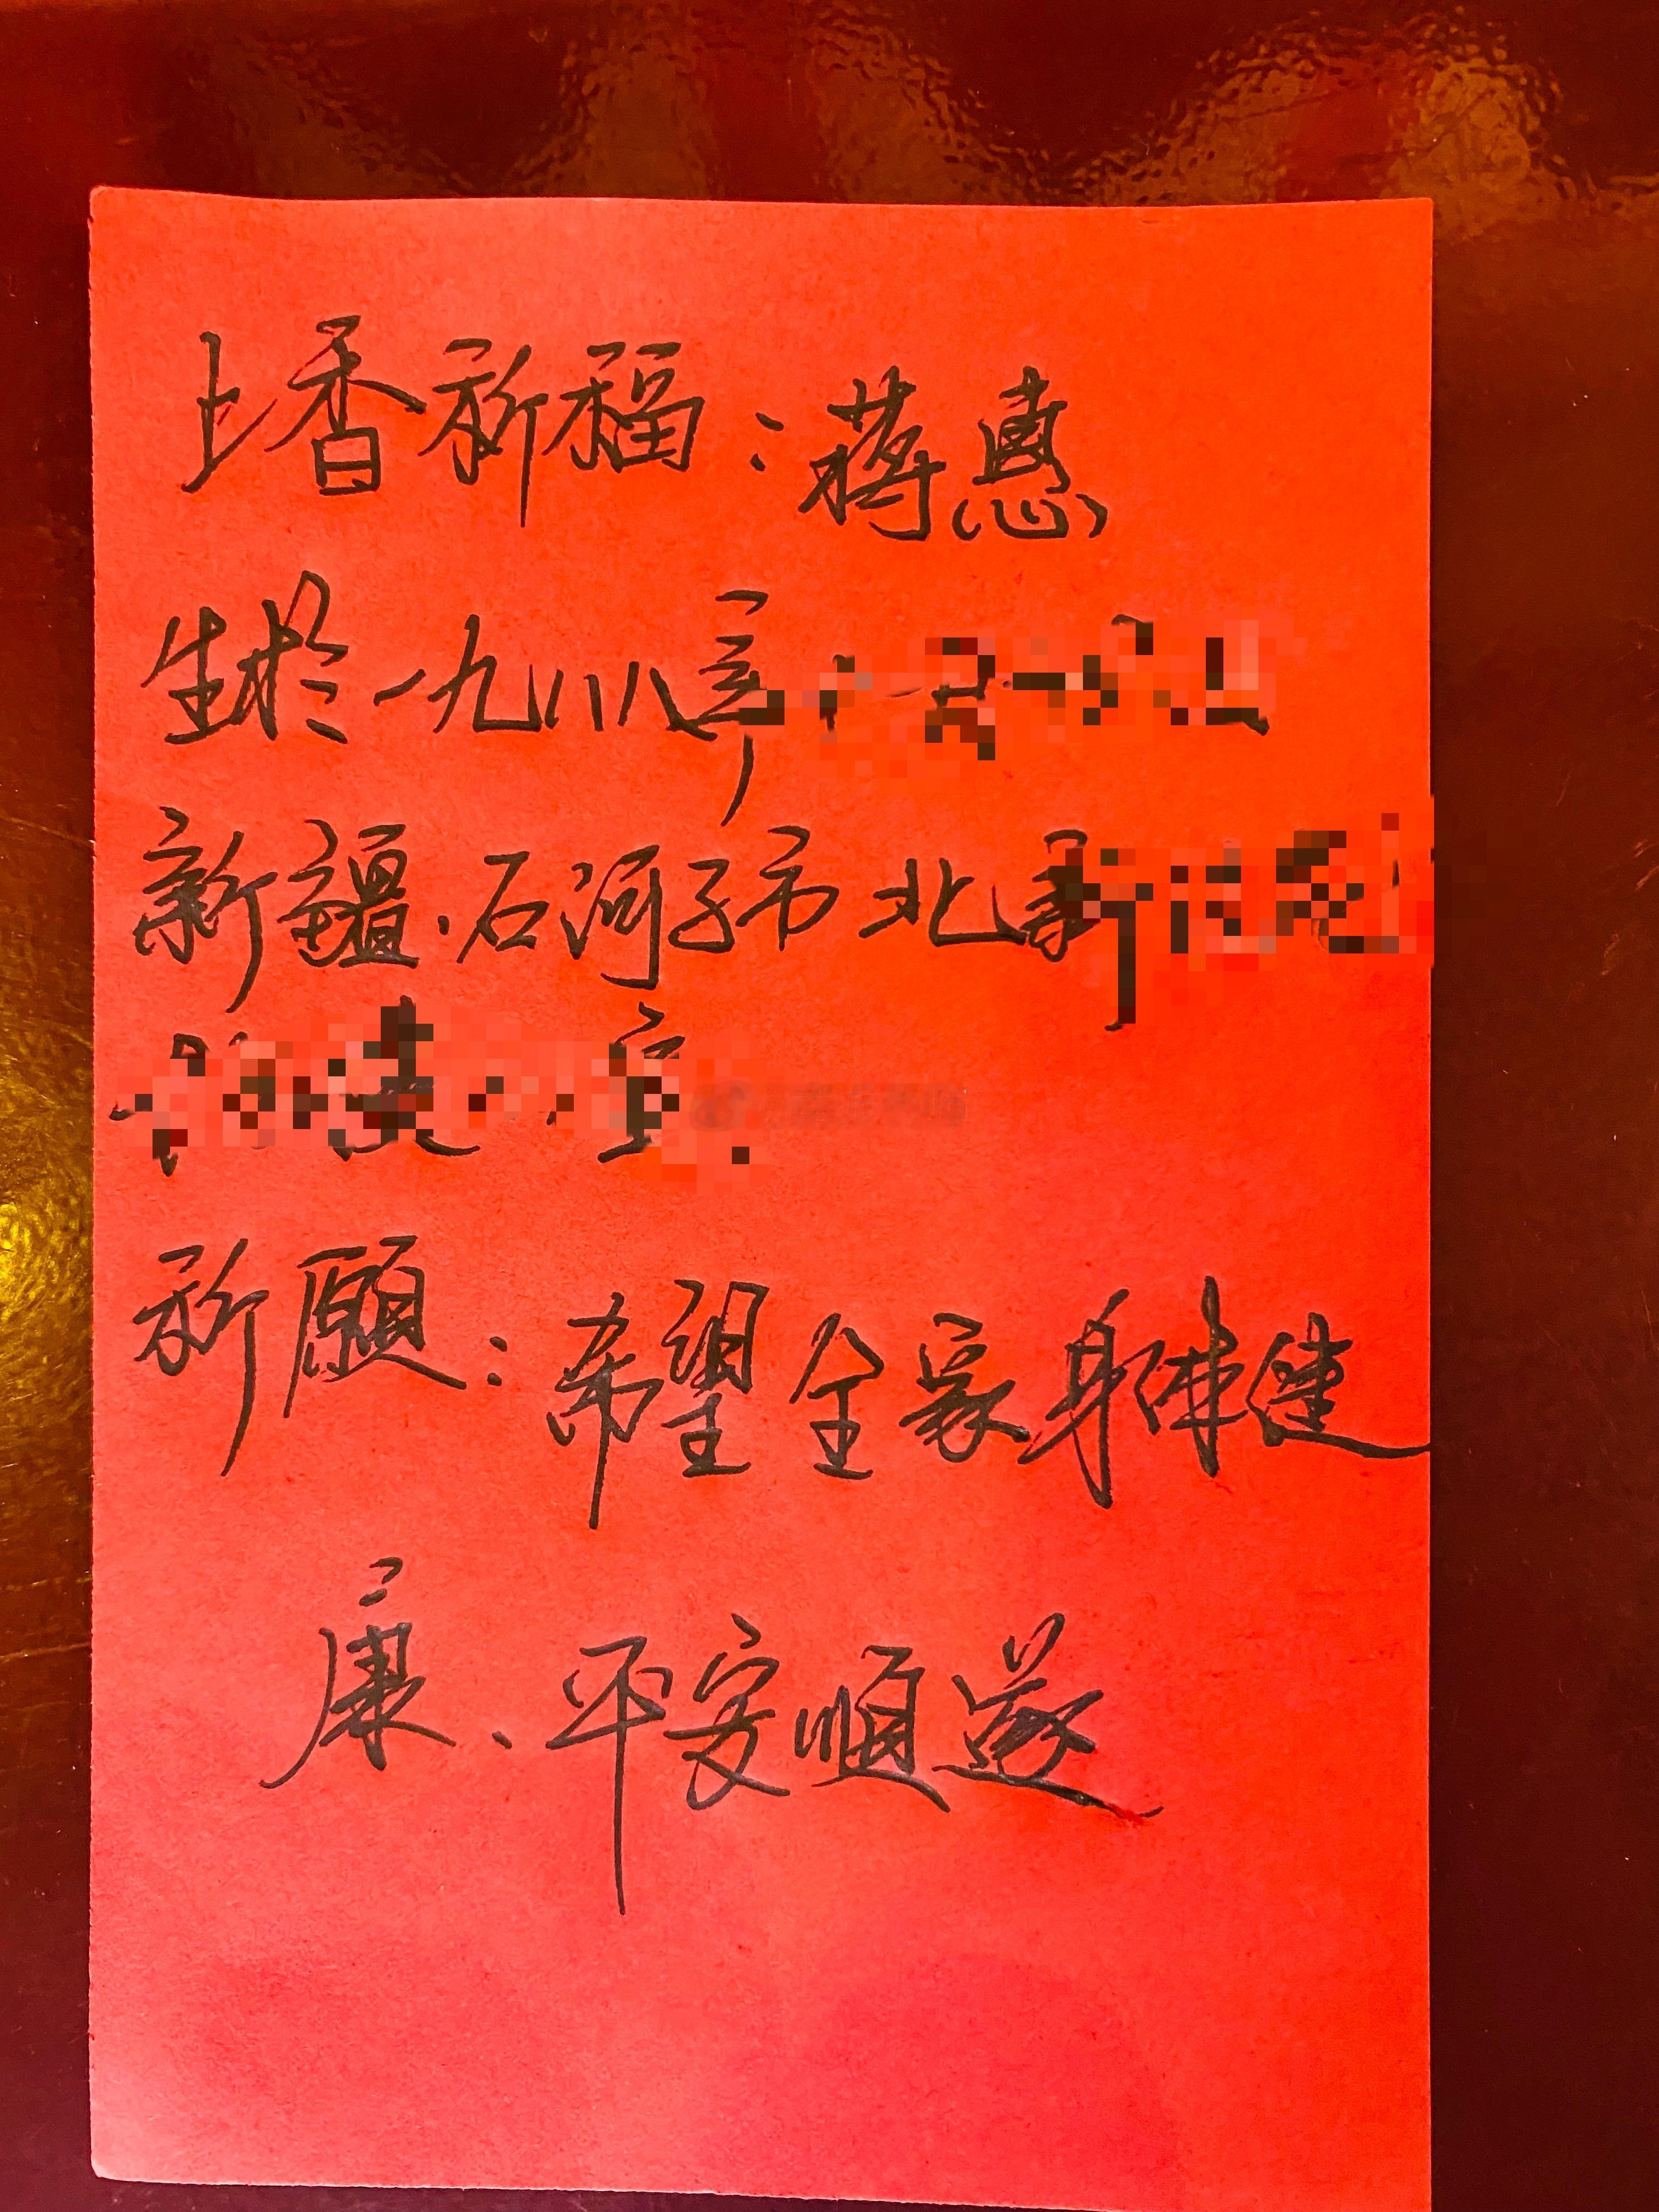 上香祈福：蒋惠
生於一九八八年
新疆·石河子市北新
祈願：希望全家身体健
康、平安順遂